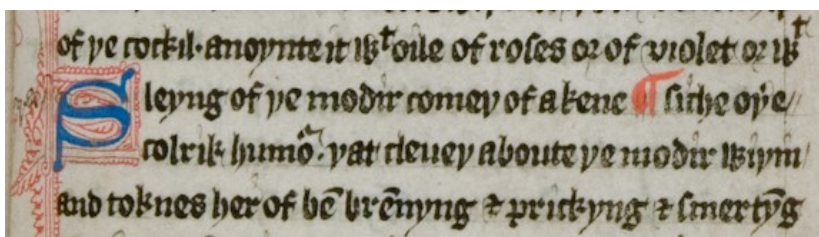 of þe cockil· anoynte it wᵗ oile of roses or of violet or wᵗ
Fleyng of þe modir comeþ of a kene ¶ siche oþe
colrik humoᵃ· þat cleueþ aboute þe modir wiþin
and toknes her of bē brēnyng ⁊ prickyng ⁊ smertȳg